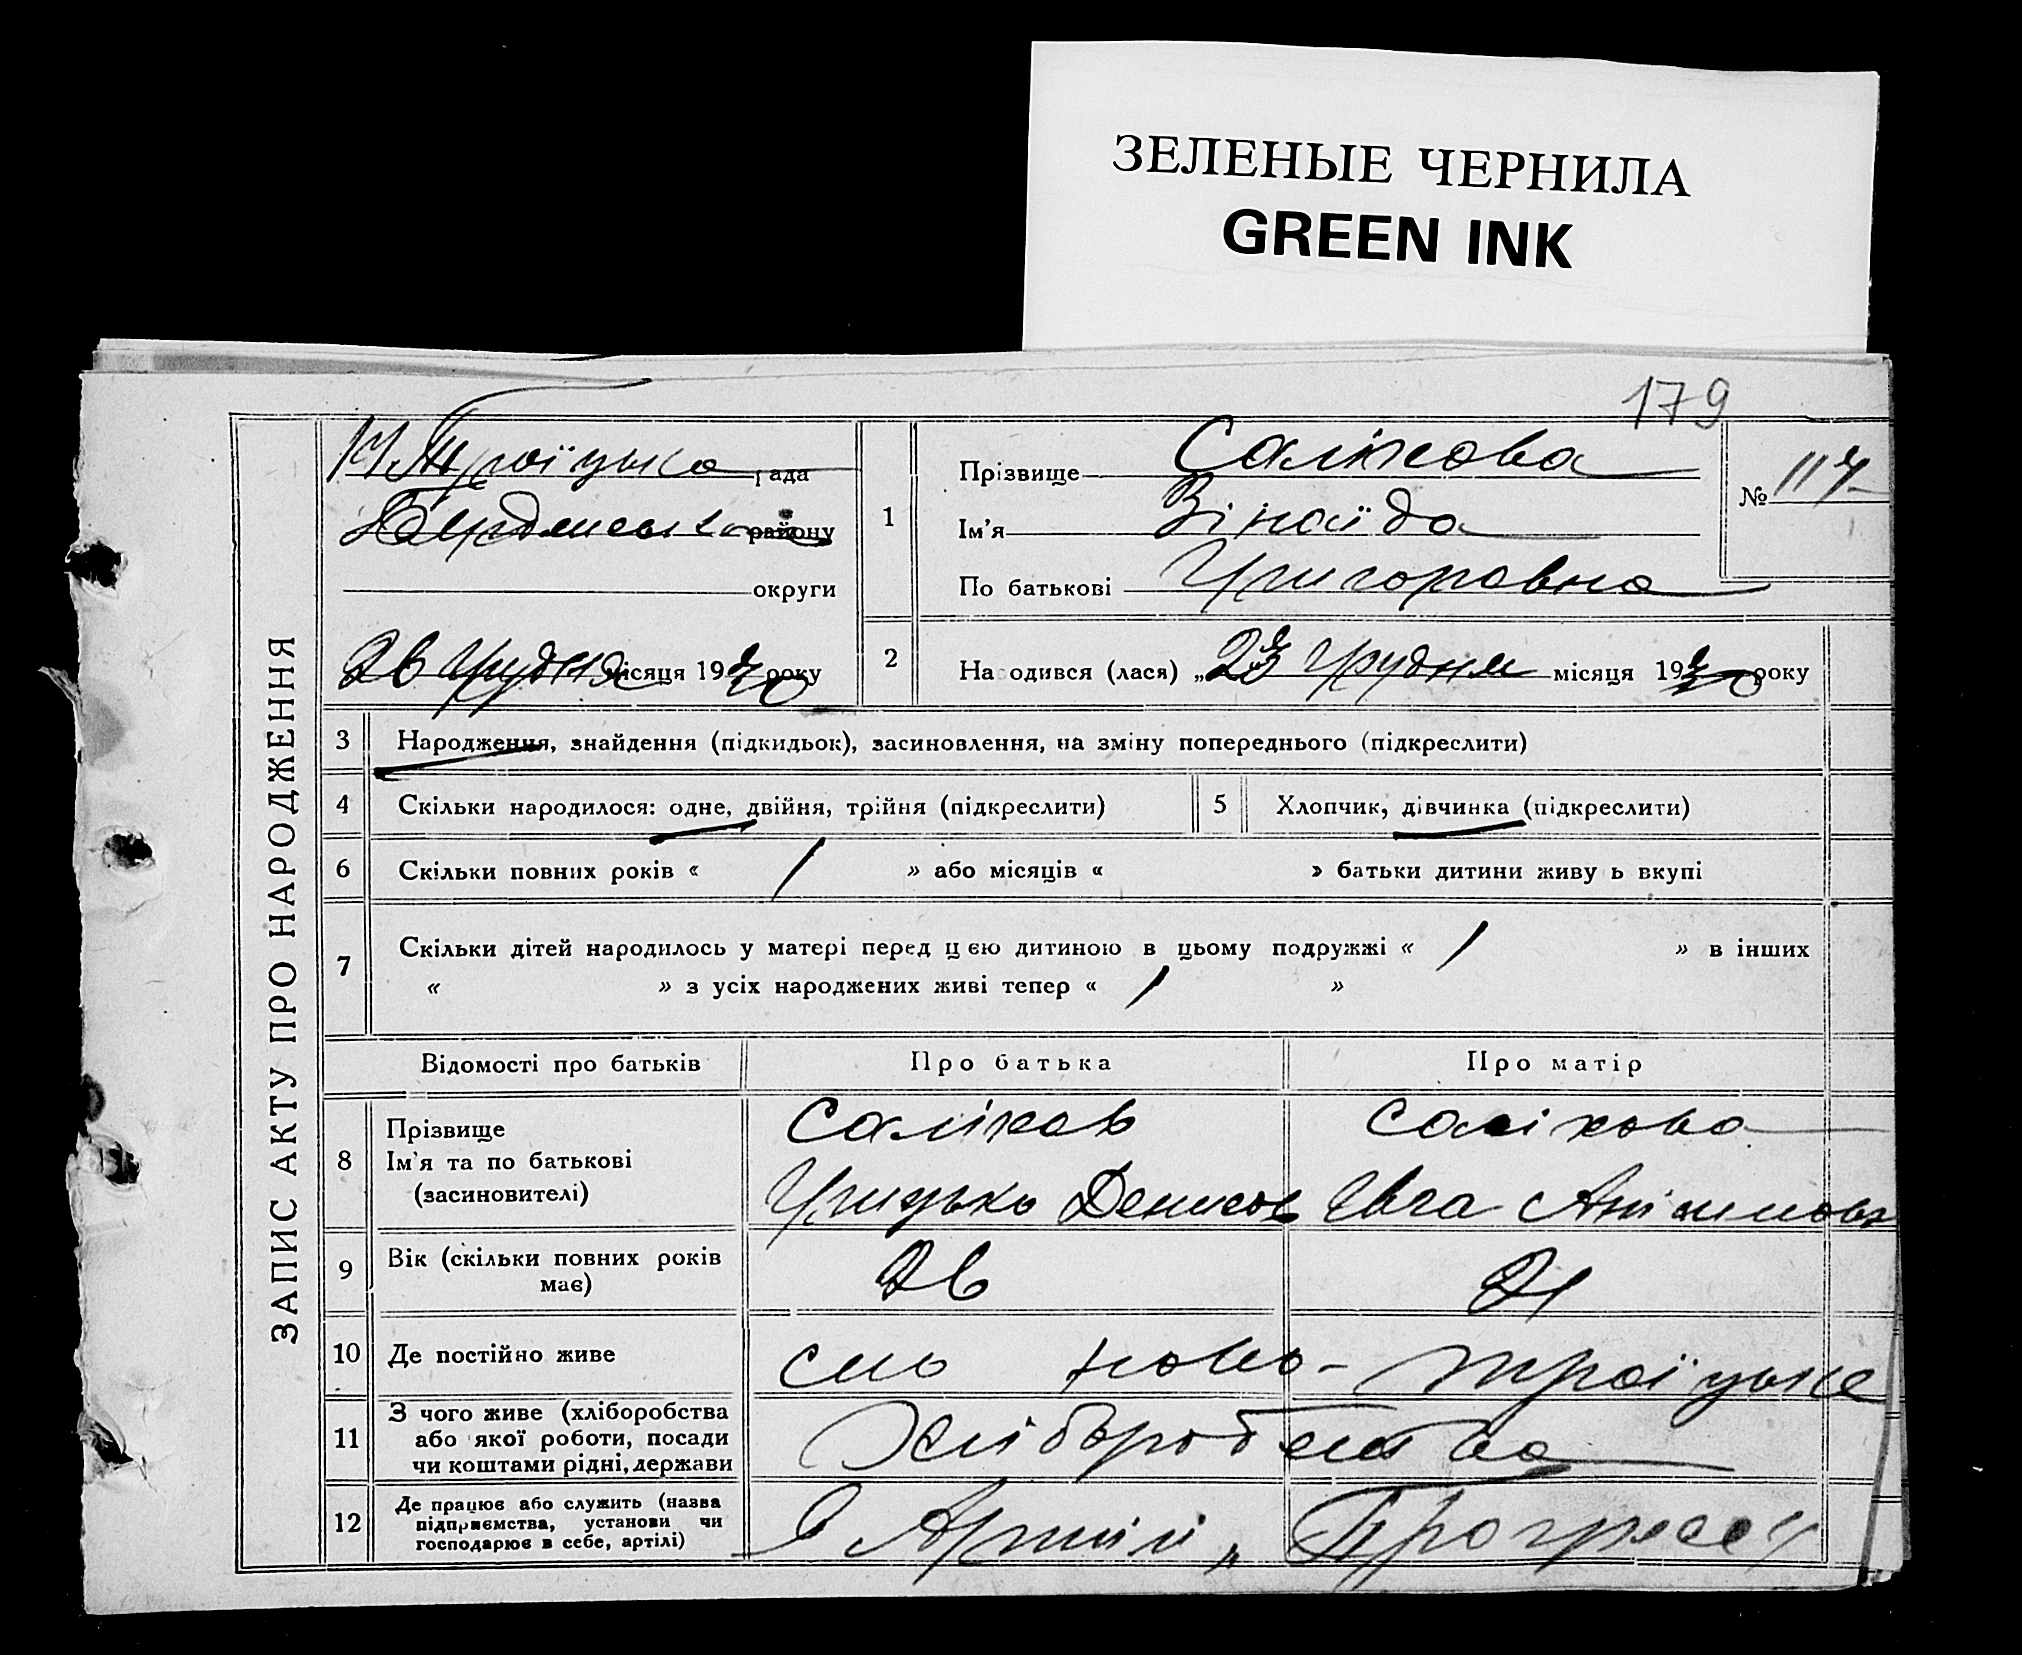 ЗЕЛЕНЫЕ ЧЕРНИЛА
GREEN INK
179
ЗАПИС АКТУ ПРО НАРОДЖЕННЯ
Н Троїцька рада
району
округи
26 Грудня місяця 1930 року
1
Прізвище Салікова
Ім'я Зінаїда
По батькові Григоровна
№ 117
2
Народився (лася) „23 Грудня місяця 1930 року
3 Народження, знайдення (підкидьок), засиновлення, на зміну попереднього (підкреслити)
4 Скільки народилося: одне, двійня, трійня (підкреслити)
5 Хлопчик, дівчинка (підкреслити)
6 Скільки повних років « 1 » або місяців « » батьки дитини живуть вкупі
7 Скільки дітей народилось у матері перед цією дитиною в цьому подружжі « 1 » в інших
« » з усіх народжених живі тепер « 1 »
Відомості про батьків Про батька Про матір
8 Прізвище
Ім'я та по батькові
(засиновителі)
Саліков
Грицько Денисов
Салікова
Ївга
9 Вік (скільки повних років
має)
26 21
10 Де постійно живе
село Ново-Троїцьке
11 З чого живе (хліборобства
або якої роботи, посади
чи коштами рідні, держави
Хліборобства
12 Де працює або служить (назва
підприємства, установи чи
господарює в себе, артілі)
В Артілі „Прогресс"